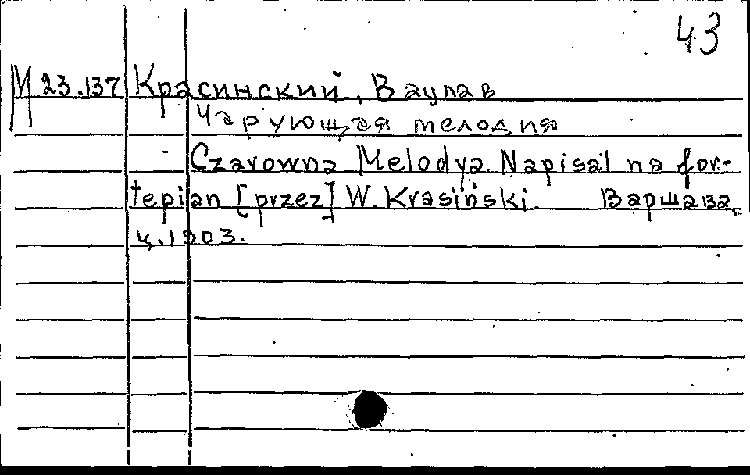 43
М 23.137 Красинский, Вацлав
Чарующая мелодия
- Czarowna Melodya. Napisał na for-
tepian [przez] W. Krasiński. Варшава,
ц. 1903.